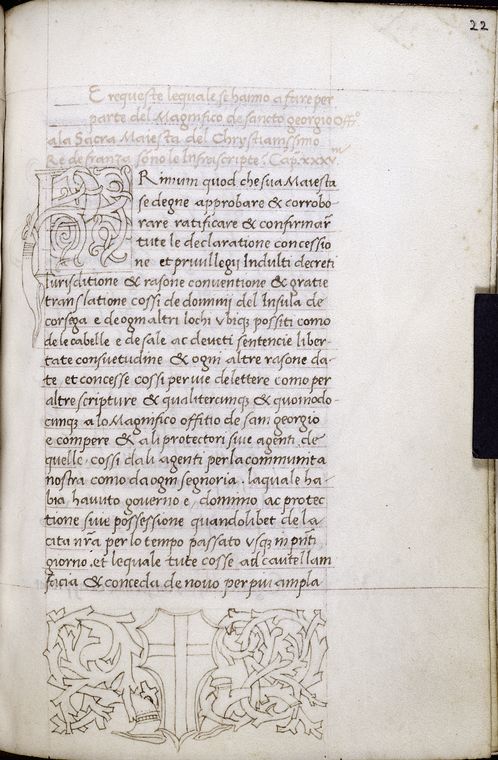 22
E requeste lequale se hanno a fare per
parte del Magnifico de sancto georgio Offº
a la Sacra Maiesta del Chrystianissimo
Re de franza sono le Infrascripte. Cap. xxxv
PRimum quod che sua Maiesta
se degne approbare & corrobo-
rare ratificare & confirmar
tute le declaratione concessio
ne et privillegij Indulti decreti
Iurisditione & rasone conventione & gratie
translatione cossi de dominij del Insula de
corsega e de ogni altri lochi ubiq possiti como
de le cabelle e de sale ac deveti sentencie liber-
tate consuetudine & ogni altre rasone da-
te et concesse cossi per vie de lettere como per
altre scripture & qualitercunq & quomodo-
cunq a lo Magnifico offitio de san georgio
e compere & a li protectori sive agenti de
quelle. cossi da li agenti per la communita
nostra como da ogni segnoria. la quale ha-
bia havuto governo e dominio ac protec-
tione sive possessione quandolibet de la
cita nrã per lo tempo passato usq in pñti
giorno. et le quale tute cosse ad cautellam
facia & conceda de novo per piu ampla